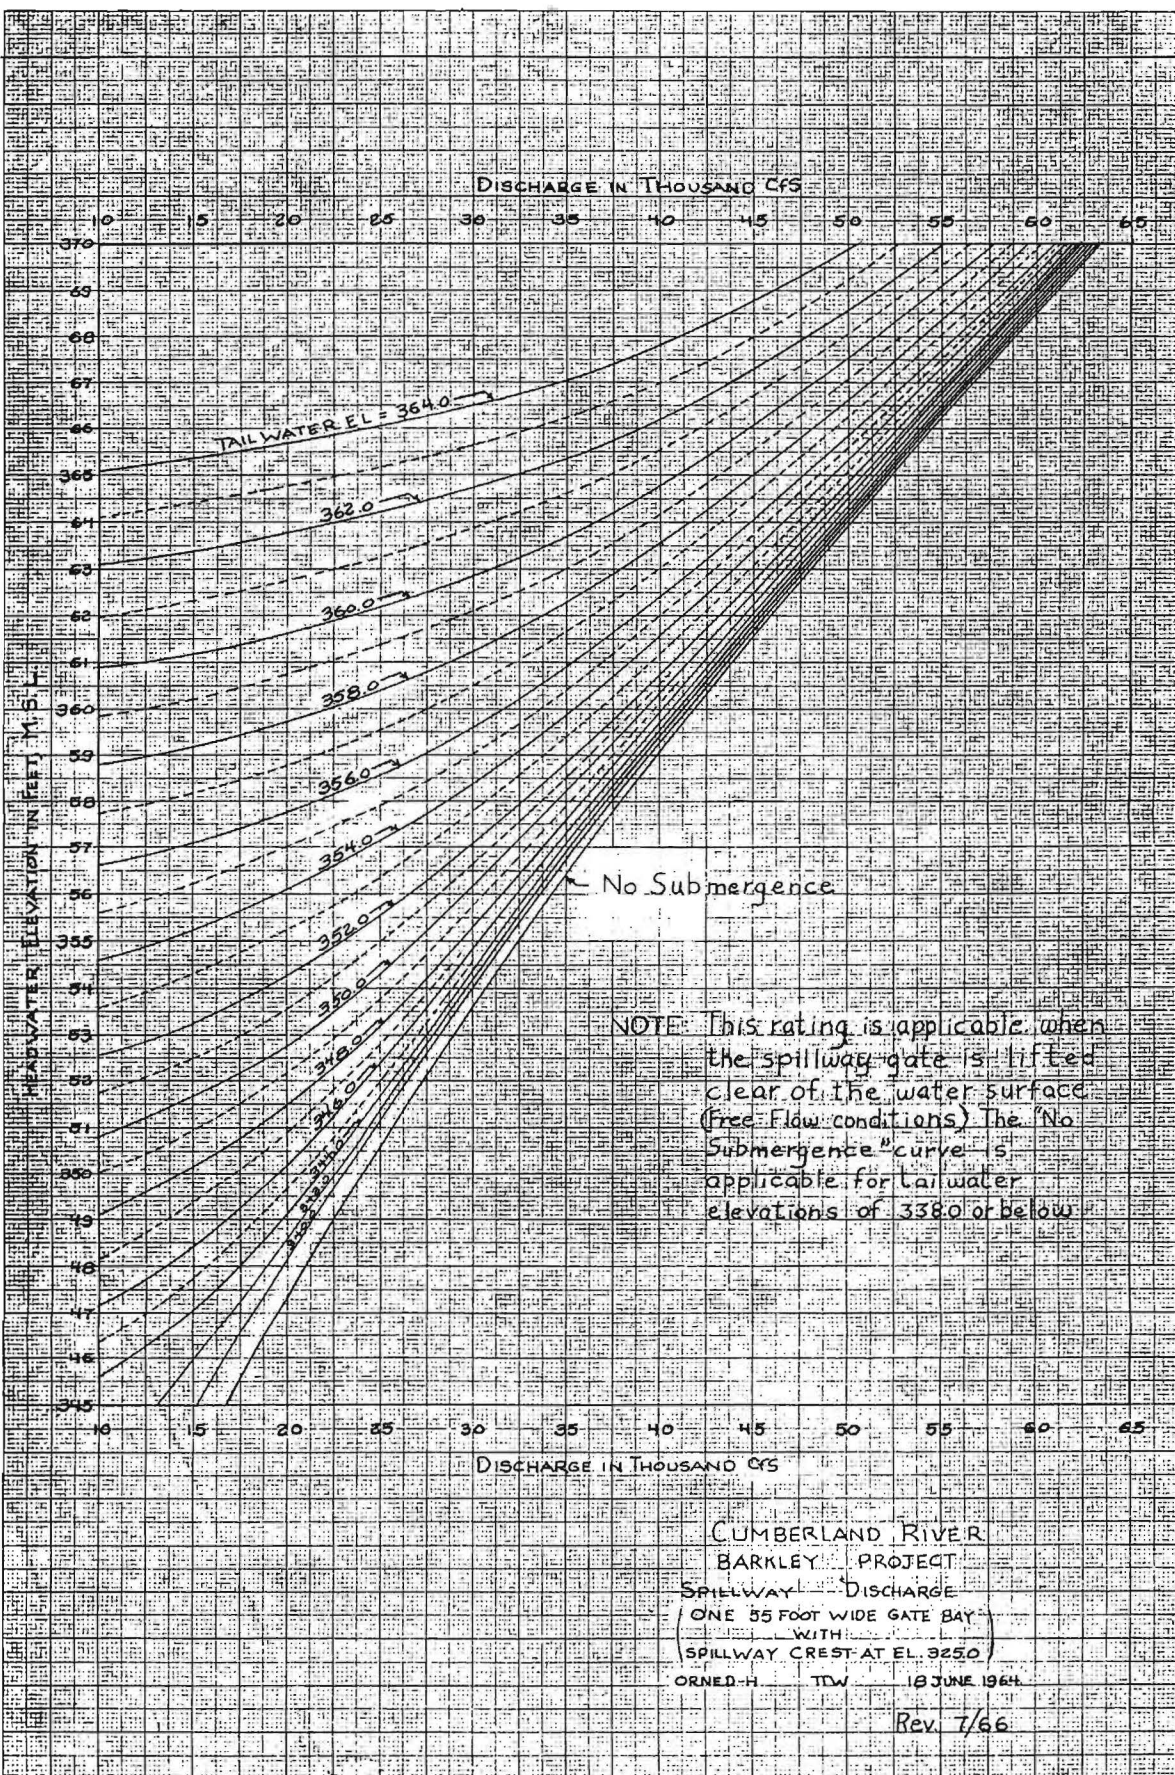 DISCHARGE IN THOUSAND CFS
10 15 20 25 30 35 40 45 50 55 60 65
370
69
68
67
66
365
64
63
62
61
360
59
58
57
56
355
54
53
52
51
350
49
48
47
46
345
HEADWATER ELEVATION IN FEET, M.S.L.
TAILWATER EL = 364.0
362.0
360.0
358.0
356.0
354.0
352.0
350.0
348.0
346.0
344.0
342.0
340.0
No Submergence
NOTE: This rating is applicable when
the spillway gate is lifted
clear of the water surface
(Free Flow conditions) The "No
Submergence" curve is
applicable for tailwater
elevations of 338.0 or below
10 15 20 25 30 35 40 45 50 55 60 65
DISCHARGE IN THOUSAND CFS
CUMBERLAND RIVER
BARKLEY PROJECT
SPILLWAY DISCHARGE
(ONE 55 FOOT WIDE GATE BAY
WITH
SPILLWAY CREST AT EL. 325.0)
ORNED-H TTW 18 JUNE 1964
Rev. 7/66